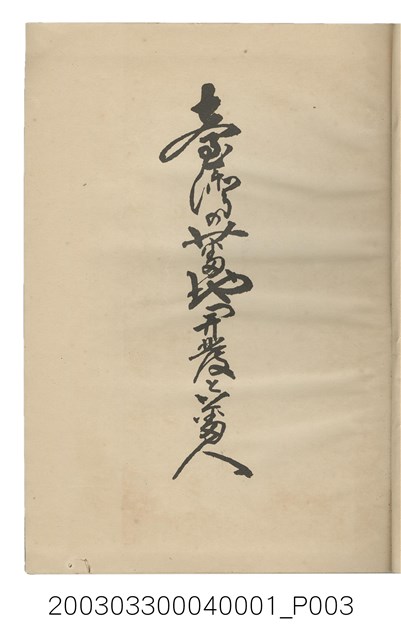 臺灣の蕃地開發と蕃人
200303300040001_P003